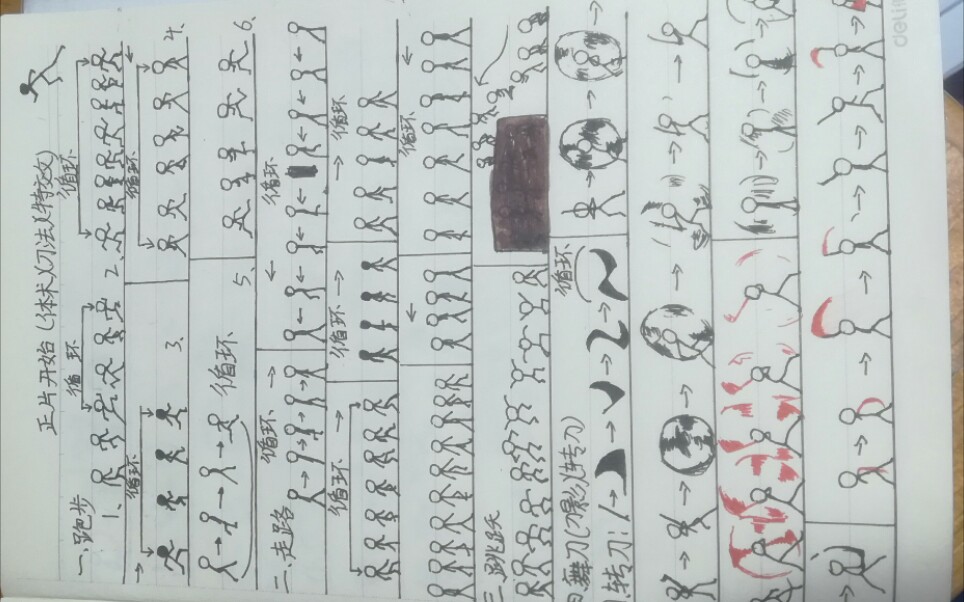 正片开始(体术)(刀法)(特效)
一、跑步
循环
循环
1、
2、
循环
循环
3、
4、
循环
5、
6、
二、走路
循环
循环
循环
循环
循环
循环
三、跳跃
四、舞刀(刀影)(转刀)
循环
转刀:
deli